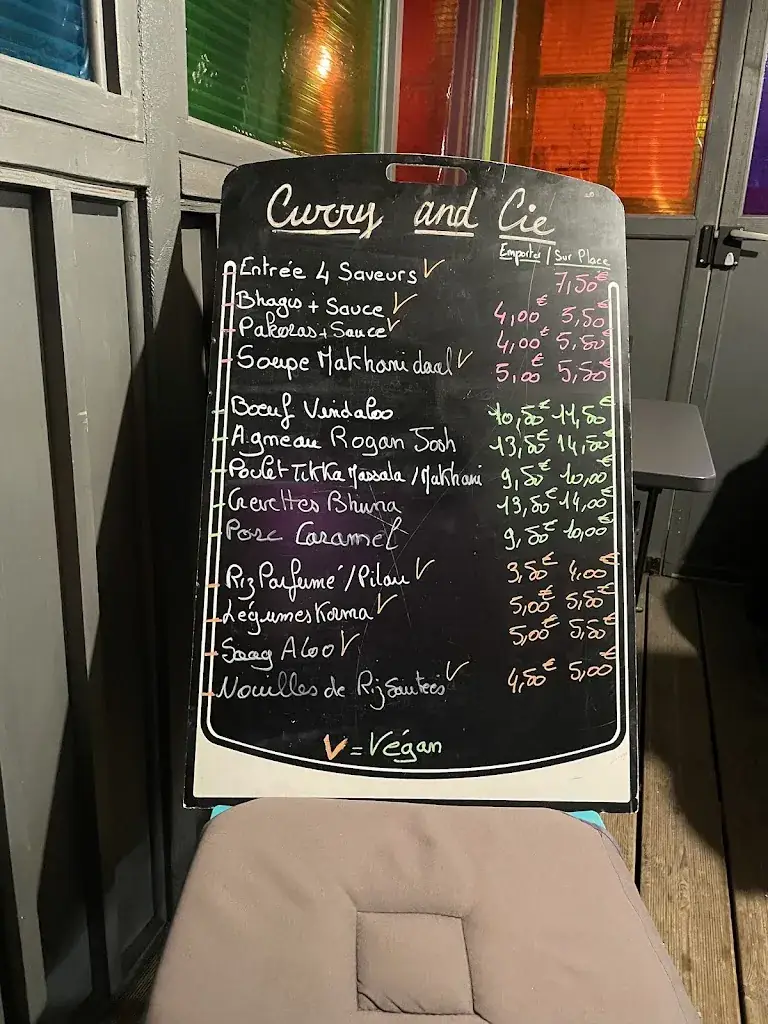 Curry and Cie
Emporter / Sur Place
Entrée 4 Saveurs V 7,50€
Bhagis + Sauce V 4,00€ 5,50€
Pakoras + Sauce V 4,00€ 5,50€
Soupe Makhani daal V 5,00€ 5,50€
Boeuf Vindaloo 10,50€ 11,50€
Agneau Rogan Josh 13,50€ 14,50€
Poulet Tikka Massala / Makhani 9,50€ 10,00€
Crevettes Bhuna 13,50€ 14,00€
Porc Caramel 9,50€ 10,00€
Riz Parfumé / Pilau V 3,50€ 4,00€
Légumes Korma V 5,00€ 5,50€
Saag Aloo V 5,00€ 5,50€
Nouilles de Riz Sautées V 4,50€ 5,00€
V = Végan